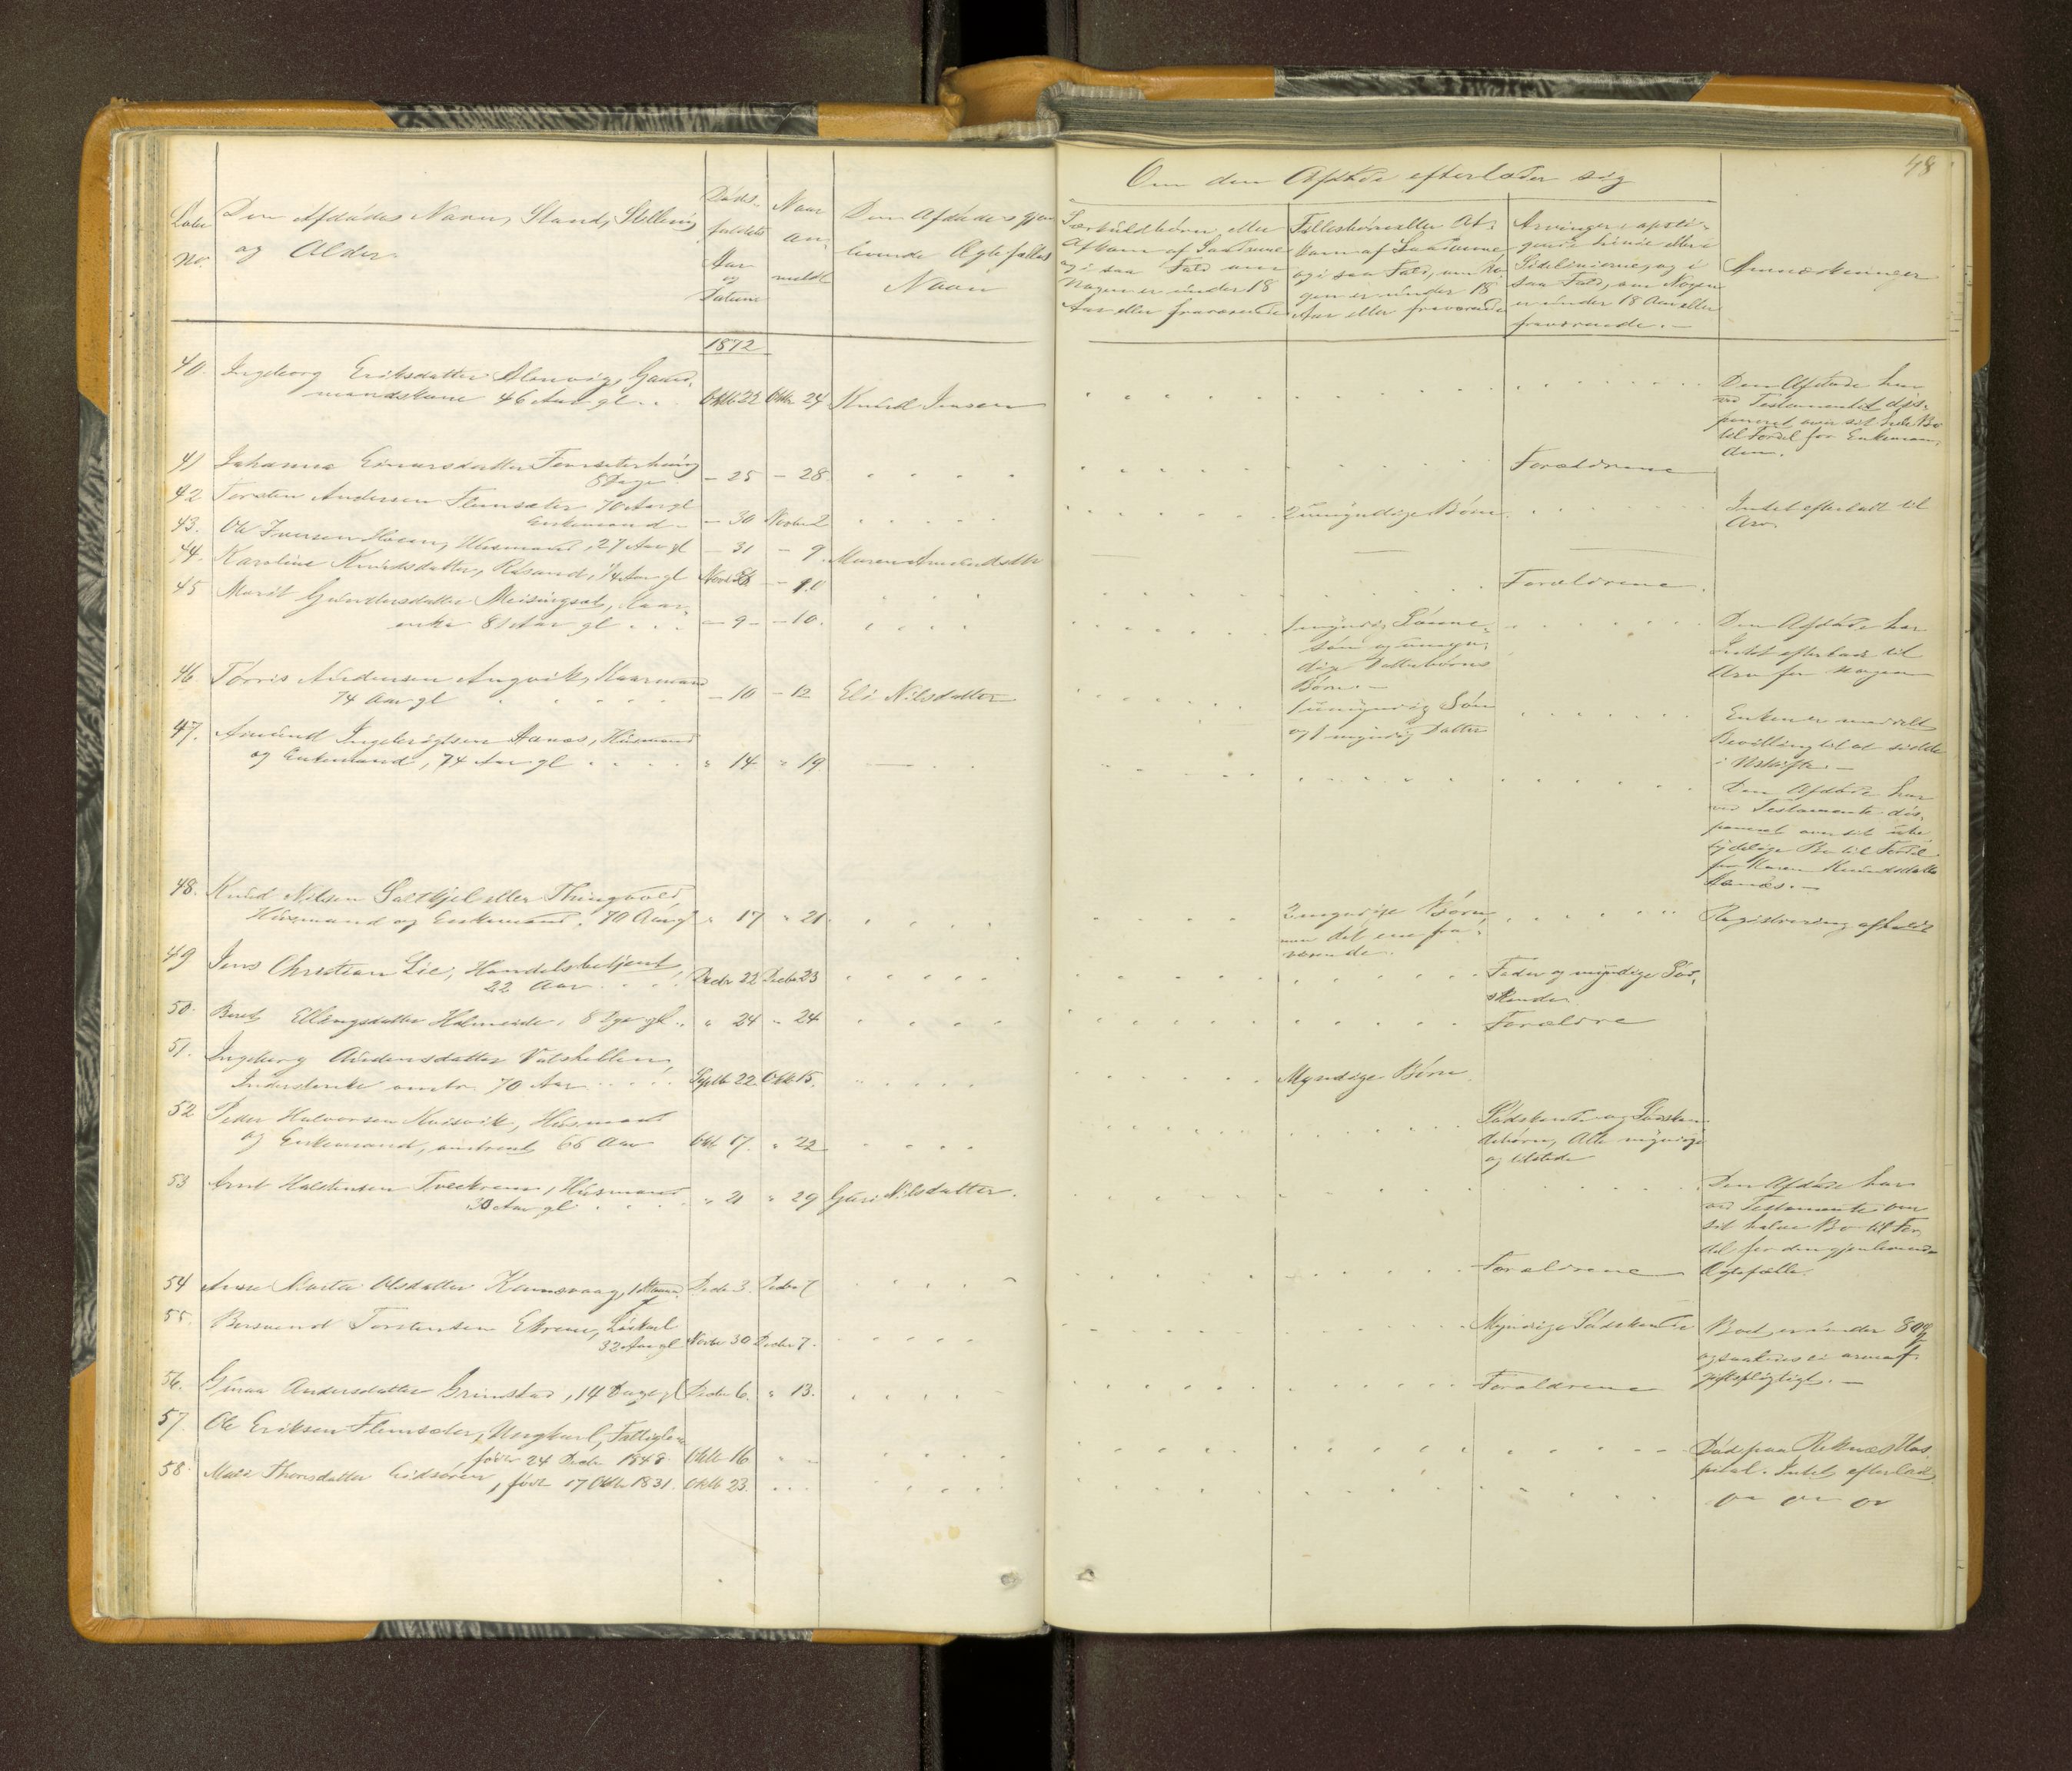 48
Om den Afdøde efterlader sig
Løbe No.
Den Afdødes Navn, Stand, Stilling
og Alder.
Døds-
faldets
Aar
og
Datum
Naar
an-
meldt
Den Afdødes gjen
levende Ægtefælles
Navn
Særkuldsbørn eller
Afkom af Saadanne
og i saa Fald om
Nogen er under 18
Aar eller fraværende
Fællesbørn eller Af-
kom af Saadanne,
og i saa Fald, om No-
gen er under 18
Aar eller fraværende
Arvinger i opsti-
gende Linie eller i
Sidelinierne, og i
saa Fald, om Nogen
er under 18 Aar eller
fraværende.
Anmærkninger
1872
40. Ingeborg Eriksdatter Gaard-
mandskone 46 Aar gl. Oktb 22 Oktbr 24 Knud Jensen
Den Afdøde har
ved Testamentet dis-
poneret over sit hele Bo
til Fordel for Enkeman-
den.
41 Johanna Einarsdatter
8 Dage - 25 - 28 Forældrene
42 Torsten Andersen Flemsæter 70 Aar gl
Enkemand - 30 Novbr 2 2 umyndige Børn Intet efterladt til
Arv
43. Ole Iversen Husmand, 27 Aar gl - 31 - 9. Maren
44. Karoline Knudsdatter, Røsand, 1/4 Aar gl - 10 Forældrene
45 Marit Gundersdatter Meisingset, Kaar-
enke 81 Aar gl - 9 - 10. 1 myndig Sønne-
søn og umyn-
dige Datterbørns
Børn.
Den Afdøde har
Intet efterladt til
Arv for Nogen
46 Tørris Andersen Angvik, Kaarmand
74 Aar gl - 10 - 12 Eli Nilsdatter 1 umyndig Søn
og 1 myndig Datter
Enken er meddelt
Bevilling til at sidde
i Uskifte.
47. Amund Ingebrigtsen Aanæs, Husmand
og Enkemand, 74 Aar gl " 14 " 19
Den Afdøde har
ved Testamente dis-
poneret over sit ube-
tydelige Bo til Fordel
for Maren Knudsdatter
Aanæs.
48. Knud Nilsen Saltkjel eller Thingvold,
Husmand og Enkemand. 70 Aar gl " 17 " 21 2 myndige Børn,
men det ene fra-
værende.
Registrering afholdt
49 Jens Christian Lie, Handelsbetjent,
22 Aar Decbr 22 Decbr 23 Fader og myndige Sød-
skende
50. Berit Ellingsdatter Holmeide, 8 Dge gl. " 24 " 24 Forældre
51. Ingeborg Andersdatter
Inderstenke omtr. 70 Aar Septb 22 Oktb 15. Myndige Børn
52 Peder Halvorsen Kvisvik, Husmand
og Enkemand, omtrent 66 Aar Oktb 17. " 22 Sødskende og Sødsken-
debørn, Alle myndige
og tilstede
53 Arnt Halstensen Husmand
30 Aar gl " 21 " 29 Guri Nilsdatter.
Den Afdøde har
ved Testamente over
sit halve Bo til For-
del for den gjenlevende
Ægtefælle.
54 Anne Marta Olsdatter Decbr 3. Decbr 7 Forældrene
55. Bersvend Torstensen Ekrem, Løskarl
32 Aar gl Novbr 30 Decbr 7. Myndige Sødskende Boet er under 80
og saaledes ei arveaf-
giftspligtigt.
56. Andersdatter Grimstad, 14 Dage gl Decbr 6. " 13. Forældrene
57. Ole Eriksen Flemsæter, Ungkarl, Fattiglem
født 24 Decbr 1848 Oktb 16 Død paa Reknæs Hos-
pital. Intet efterladt
58. Thoresdatter Eidsøren, født 17 Oktbr 1831. Oktb 23.